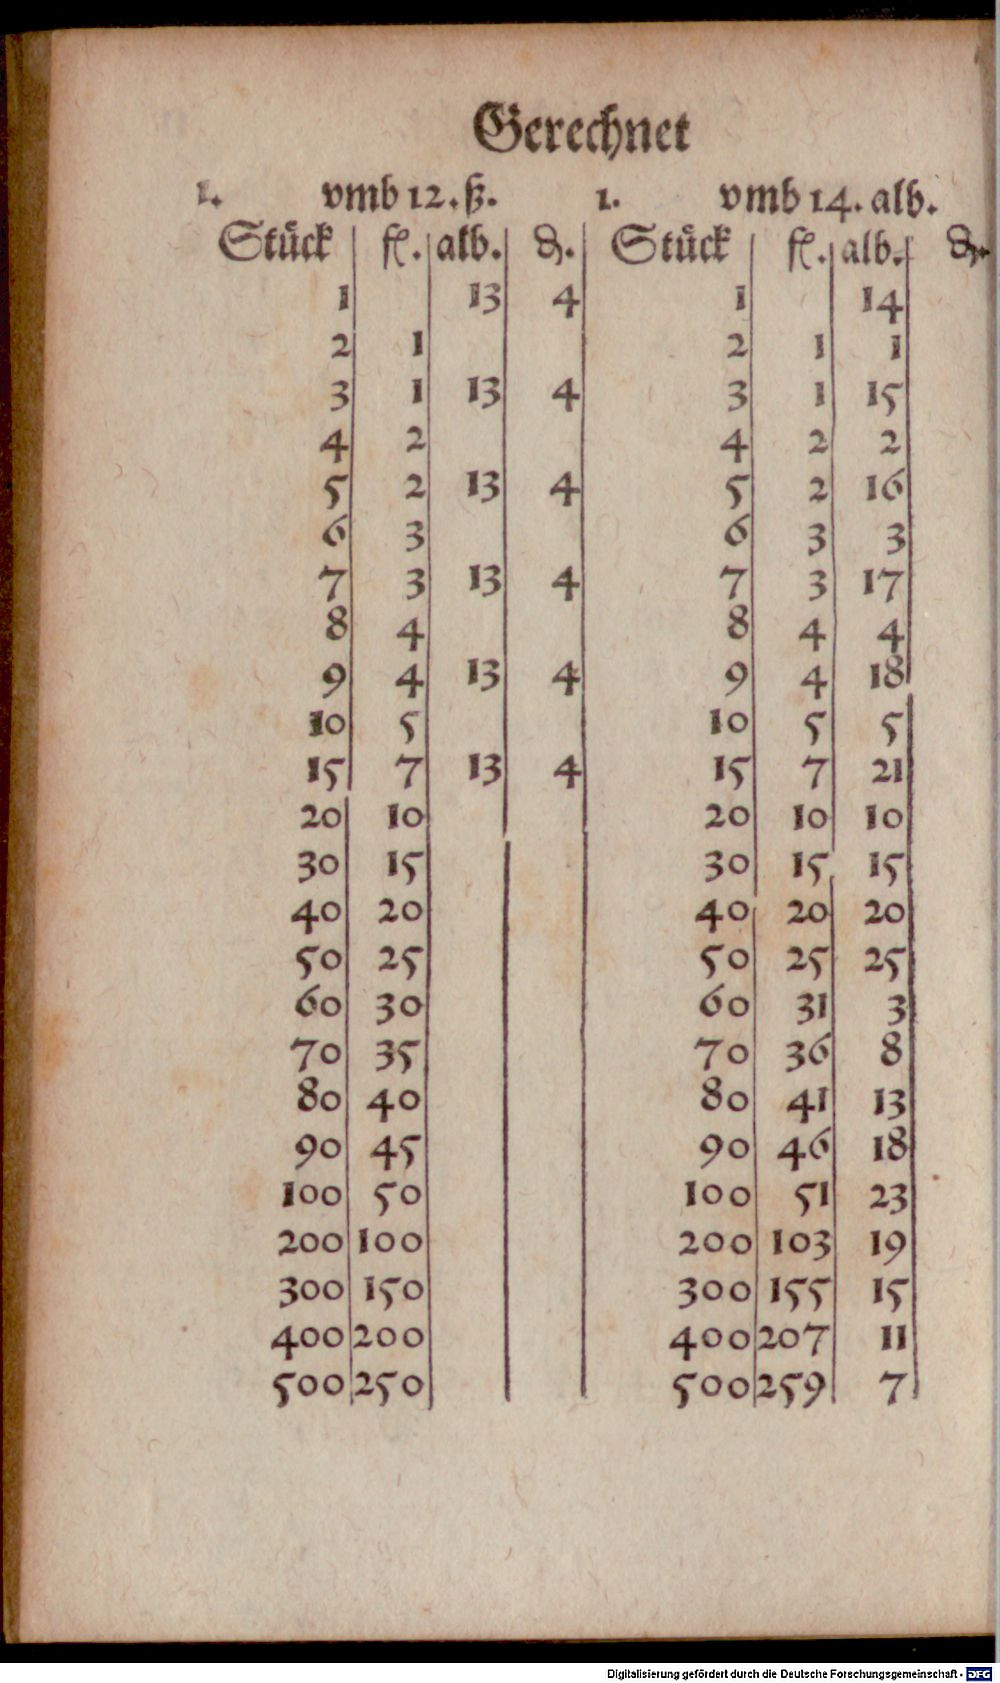 Gerechnet
1. vmb 12. ß. 1. vmb 14. alb.
Stück fl. alb. ₰. Stück fl. alb. ₰.
1 13 4 1 14
2 1 2 1 1
3 1 13 4 3 1 15
4 2 4 2 2
5 2 13 4 5 2 16
6 3 6 3 3
7 3 13 4 7 3 17
8 4 8 4 4
9 4 13 4 9 4 18
10 5 10 5 5
15 7 13 4 15 7 21
20 10 20 10 10
30 15 30 15 15
40 20 40 20 20
50 25 50 25 25
60 30 60 31 3
70 35 70 36 8
80 40 80 41 13
90 45 90 46 18
100 50 100 51 23
200 100 200 103 19
300 150 300 155 15
400 200 400 207 11
500 250 500 259 7
Digitalisierung gefördert durch die Deutsche Forschungsgemeinschaft - DFG